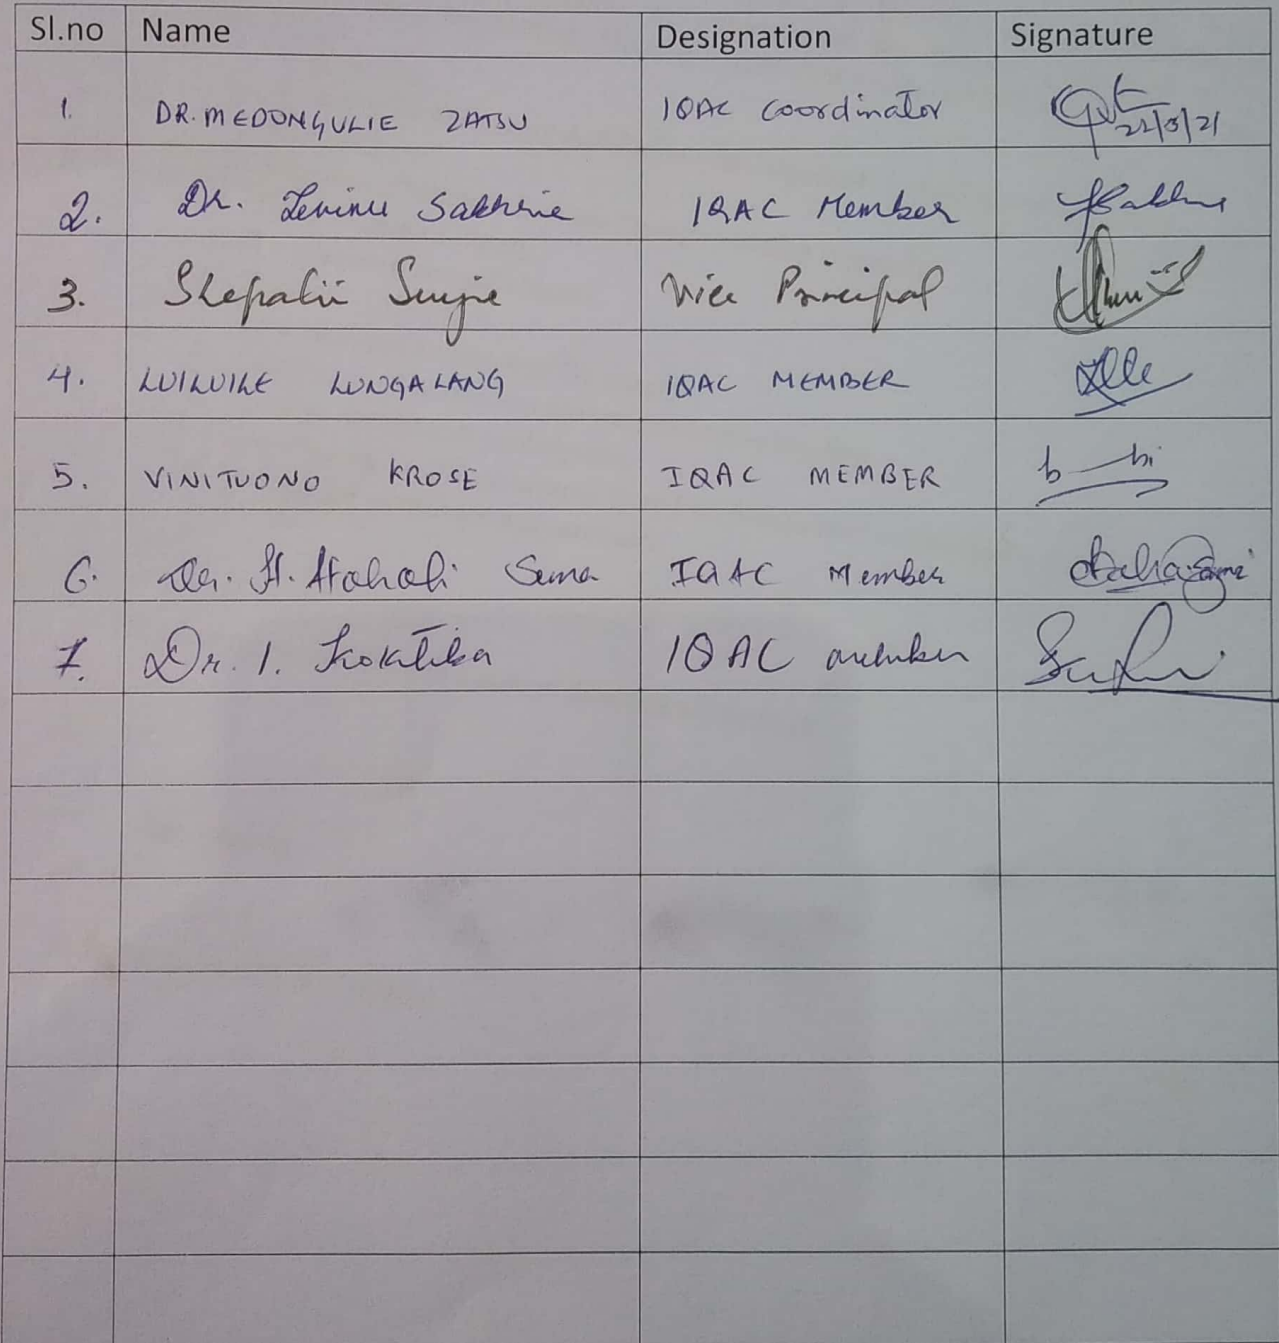 Sl.no Name Designation Signature
1. DR. MEDONGULIE ZATSU IQAC Coordinator 22/5/21
2. Dr. Levinu Sakhrie IQAC Member
3. Shepalii Sunjie Vice Principal
4. LUILUILE LUNGALANG IQAC MEMBER
5. VINITUONO KROSE IQAC MEMBER
6. Dr. H. Atoholi Sema IQAC Member
7. Dr. I. Tsokitika IQAC member